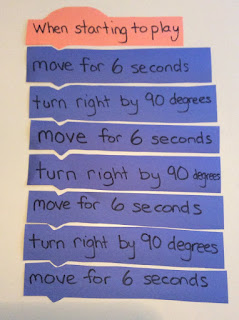 When starting to play
move for 6 seconds
turn right by 90 degrees
move for 6 seconds
turn right by 90 degrees
move for 6 seconds
turn right by 90 degrees
move for 6 seconds